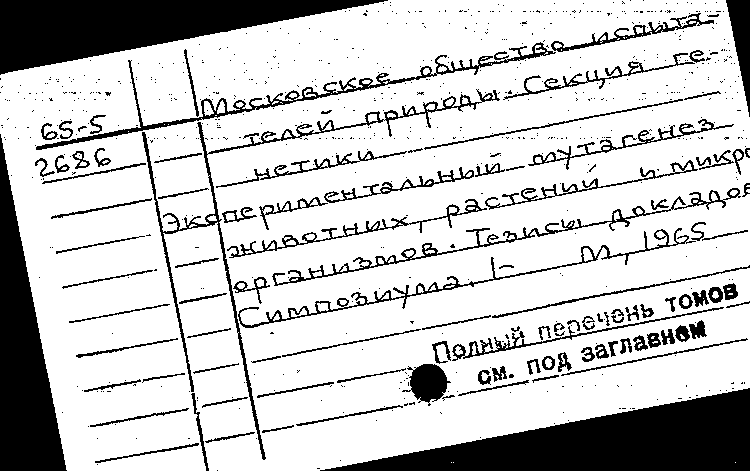 65-5
2686
Московское общество испыта-
телей природы. Секция ге-
нетики
Экспериментальный мутагенез
животных, растений и микро
организмов. Тезисы докладов
Симпозиума. 1- М., 1965
Полный перечень томов
см. под заглавием